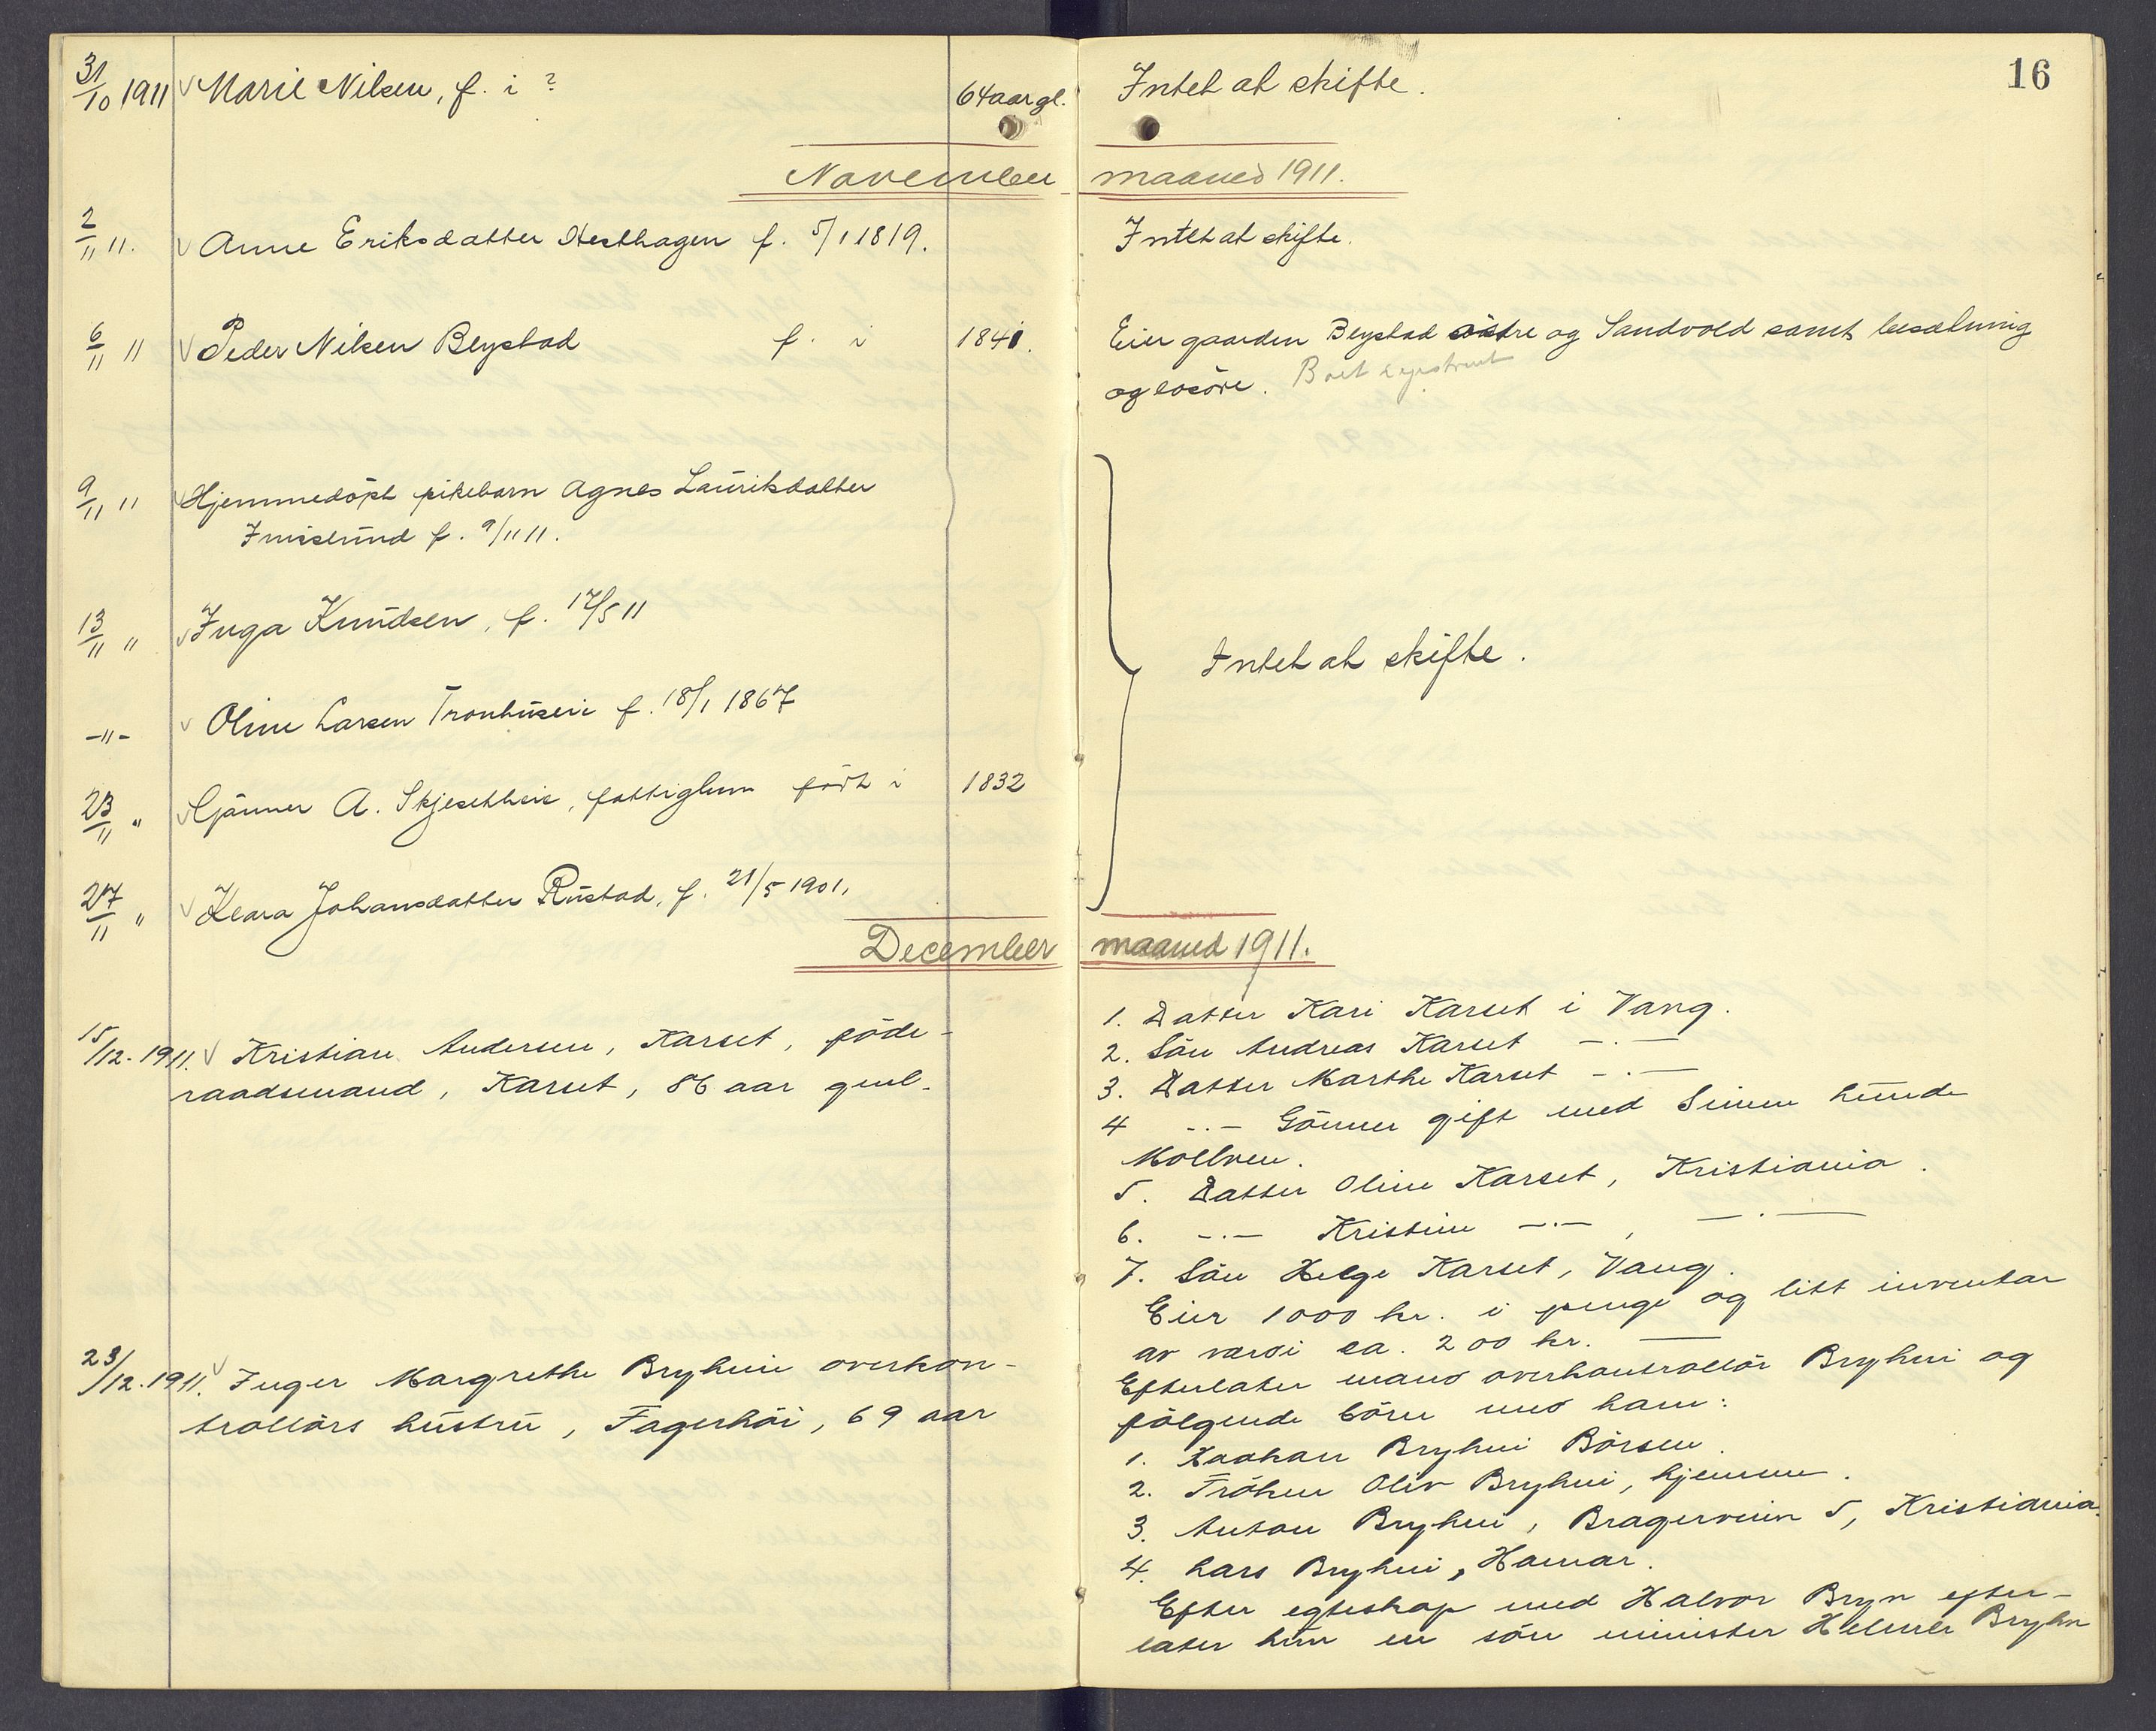 31/10 1911 Marie Nilsen, f. i ? 64 aar gl. Intet at skifte.
16
November maaned 1911.
2/11 11. Anne Eriksdatter Hesthagen f. 5/1 1819. Intet at skifte.
6/11 11 Peder Nilsen Blystad f. i 1841. Eier gaarden Blystad östre og Sandvold samt besætning
og losöre. Boet
9/11 11 Hjemmedöpt pikebarn Agnes Lauritsdatter
f. 9/11 11.
13/11 " Inga Knudsen, f. 17/5 11
Intet at skifte.
-"- Oline Larsen Tronhuseie f. 18/1 1867
23/11 " Gjönner A. Skjesetheie, fattiglem født i 1832
27/11 " Klara Johansdatter Rustad, f. 21/5 1901.
December maaned 1911.
15/12-1911. Kristian Andersen, Karset, föde-
raadsmand, Karset, 86 aar gml.
1. Datter Kari Karset i Vang.
2. Sön Andreas Karset -.-
3. Datter Marthe Karset -.-
4 -.- Gönner gift med Simen Lunde
Mollven.
5. Datter Oline Karset, Kristiania.
6. -.- Kristine -.-, -.-
7. Sön Helge Karset, Vang.
Eier 1000 kr. i penge og litt inventar
av værdi ca. 200 kr.
23/12-1911. Inger Margrethe Bryhni overkon-
trollörs hustru, Fagerhöi, 69 aar
Efterlater mand overkontrollör Bryhni og
fölgende börn med ham:
1. Haakan Bryhni Börsen.
2. Fröken Oliv Bryhni, hjemme.
3. Anton Bryhni, Bragerveien 5, Kristiania.
4. Lars Bryhni, Hamar.
Efter egteskap med Halvor Bryn efter-
later hun en sön minister Helmer Bryhn